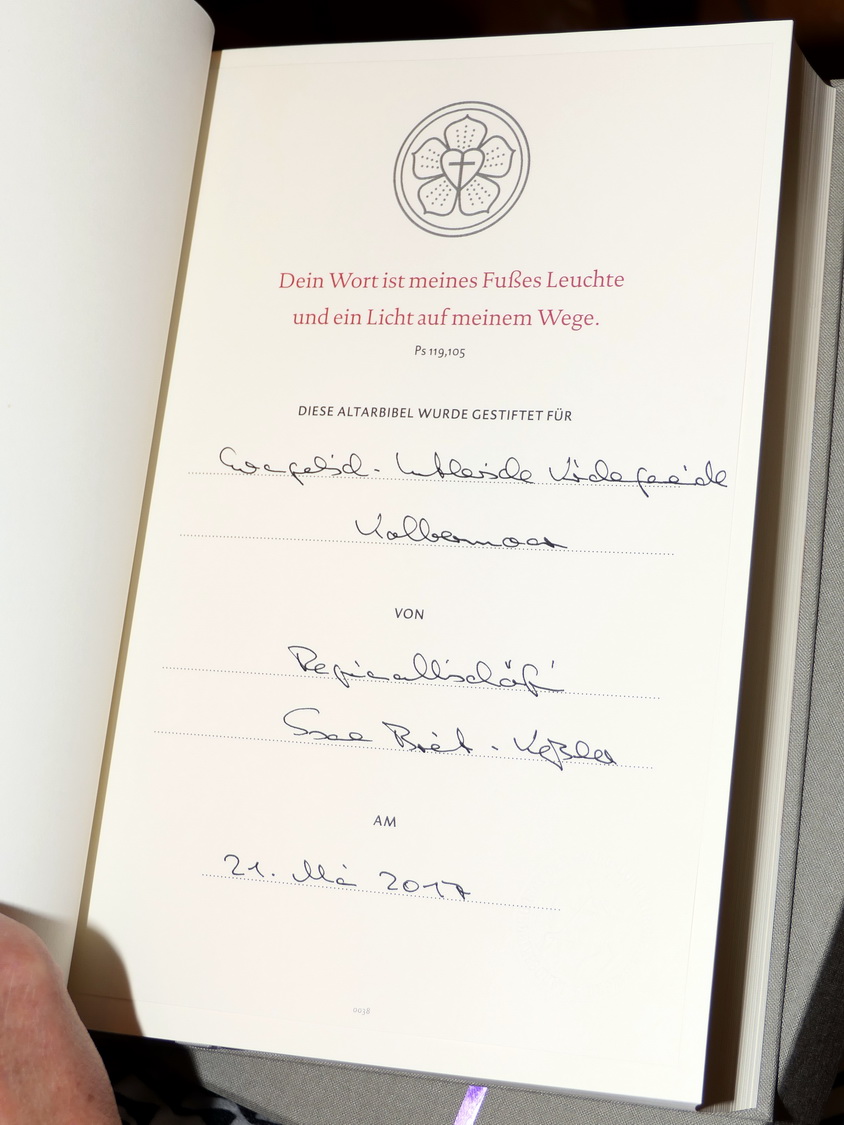 Dein Wort ist meines Fußes Leuchte
und ein Licht auf meinem Wege.
Ps 119,105
DIESE ALTARBIBEL WURDE GESTIFTET FÜR
Evangelisch-Lutherische Kirchengemeinde
Kolbermoor
VON
Regionalbischöfin
Susanne Breit-Keßler
AM
21. Mai 2017
0038